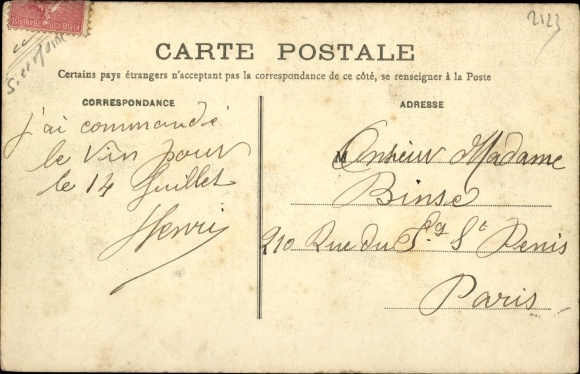 2123
S. et Marne
CARTE POSTALE
Certains pays étrangers n'acceptant pas la correspondance de ce côté, se renseigner à la Poste
CORRESPONDANCE
j'ai commandé
le vin pour
le 14 Juillet
Henri
ADRESSE
Monsieur Madame
Binse
210 Rue du Fg St Denis
Paris